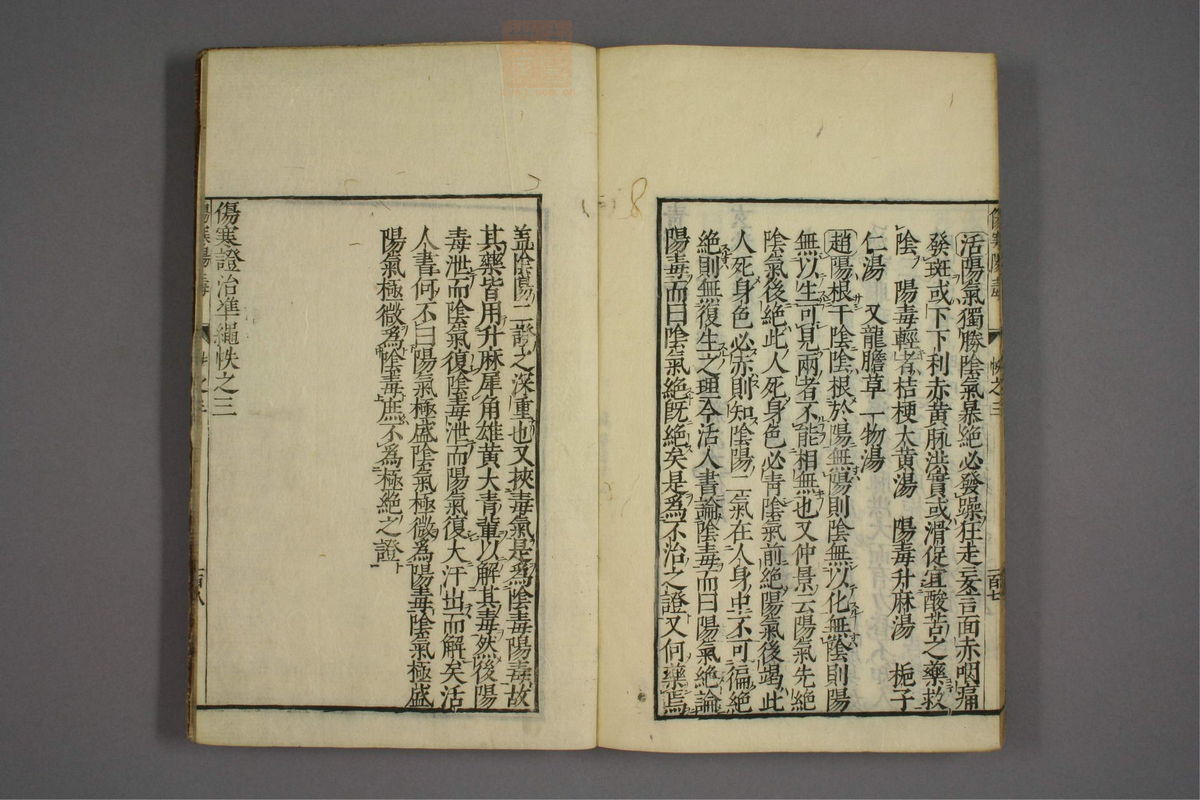 活陽氣獨勝陰氣暴絕必發躁狂走妄言面赤咽痛
發斑或下下利赤黃脉洪實或滑促宜酸苦之藥救
陰 陽毒輕者桔梗大黃湯 陽毒升麻湯 梔子
仁湯 又龍膽草一物湯
趙陽根于陰陰根於陽無陽則陰無以化無陰則陽
無以生可見兩者不能相無也又仲景云陽氣先絕
陰氣後絕此人死身色必青陰氣前絕陽氣後竭此
人死身色必赤則知陰陽二氣在人身中不可偏絕
絕則無復生之理今活人書論陰毒而曰陽氣絕論
陽毒而曰陰氣絕既絕矣是爲不治之證又何藥焉
傷寒陽毒 帙之三 一百七
蓋陰陽二證之深重也又挾毒氣是爲陰毒陽毒故
其藥皆用升麻犀角雄黃大青輩以解其毒然後陽
毒泄而陰氣復陰毒泄而陽氣復大汗出而解矣活
人書何不曰陽氣極盛陰氣極微爲陽毒陰氣極盛
陽氣極微爲陰毒庶不爲極絕之證
傷寒證治準繩帙之三
傷寒陽毒 帙之三 一百八